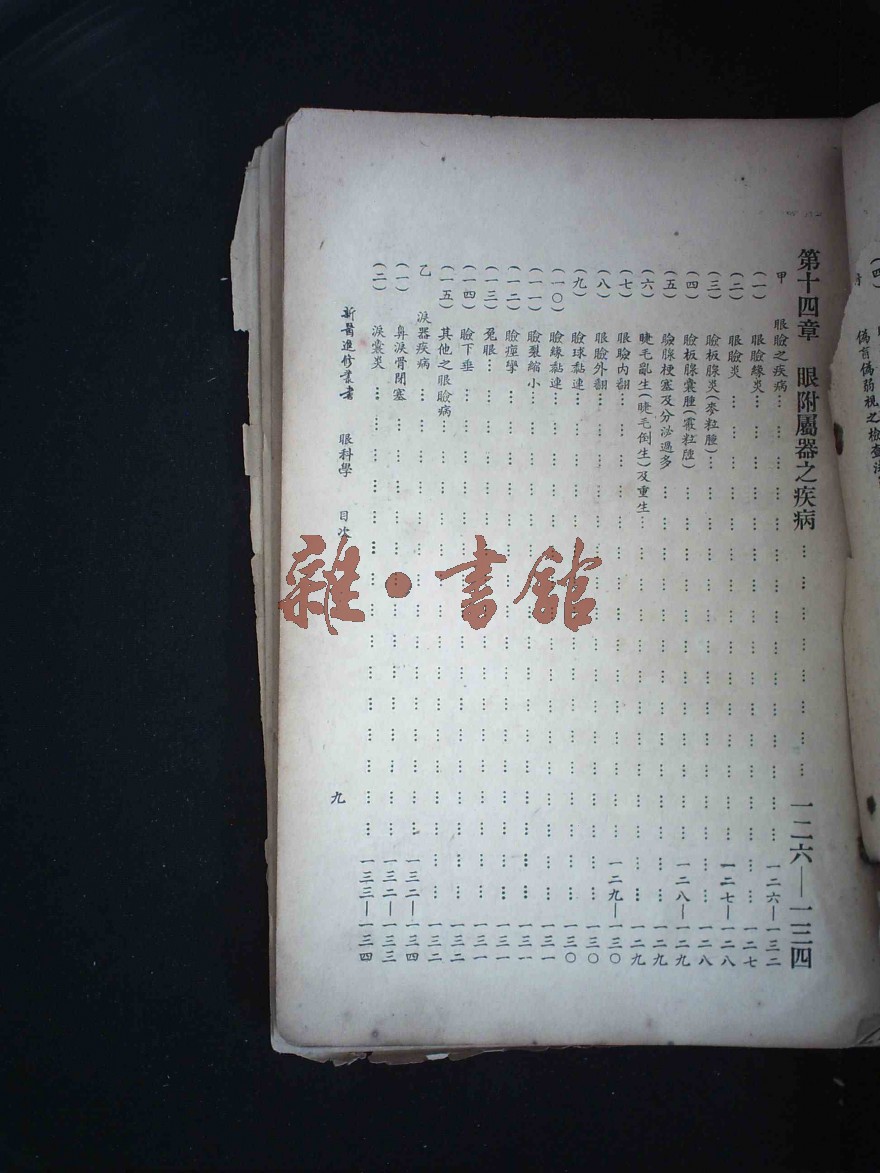 (四)
偽盲偽弱視之檢查法
第十四章 眼附屬器之疾病……一二六—一三四
甲 眼瞼之疾病……一二六—一三二
(一) 眼瞼緣炎……一二七
(二) 眼瞼炎……一二七—一二八
(三) 瞼板腺炎(麥粒腫)……一二八
(四) 瞼板腺囊腫(霰粒腫)……一二八—一二九
(五) 瞼腺梗塞及分泌過多……一二九
(六) 睫毛亂生(睫毛倒生)及重生……一二九
(七) 眼瞼內翻……一二九—一三〇
(八) 眼瞼外翻……一三〇
(九) 瞼球黏連……一三〇
(一〇) 瞼緣黏連……一三一
(一一) 瞼裂縮小……一三一
(一二) 瞼痙攣……一三一
(一三) 兔眼……一三一
(一四) 瞼下垂……一三二
(一五) 其他之眼瞼病……一三二
乙 淚器疾病……一三二—一三四
(一) 鼻淚骨閉塞……一三二—一三三
(二) 淚囊炎……一三三—一三四
新醫進修叢書 眼科學 目次 九
雜·書館